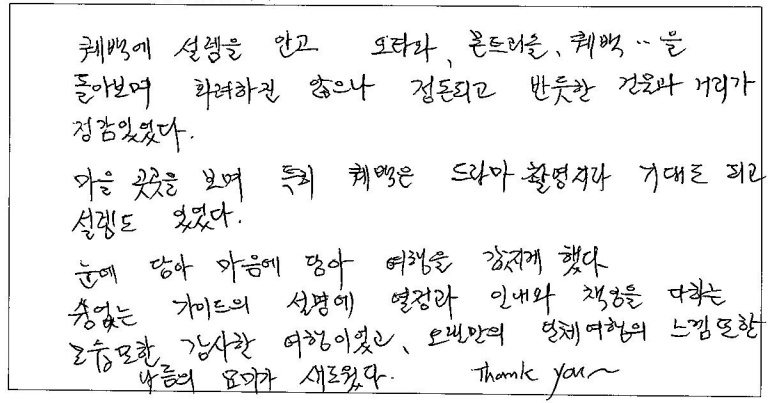 퀘백에 설렘을 안고 오타와, 몬트리올, 퀘백..을
돌아보며 화려하진 않으나 정돈되고 반듯한 건물과 거리가
정감있었다.
마을 곳곳을 보며 특히 퀘백은 드라마 촬영지라 기대도 되고
설렘도 있었다.
눈에 담아 마음에 담아 여행을 값지게 했다
쉼없는 가이드의 설명에 열정과 인내와 책임을 다하는
모습또한 감사한 여행이었고, 오랜만의 단체여행의 느낌또한
나름의 묘미가 새로웠다. Thank you~